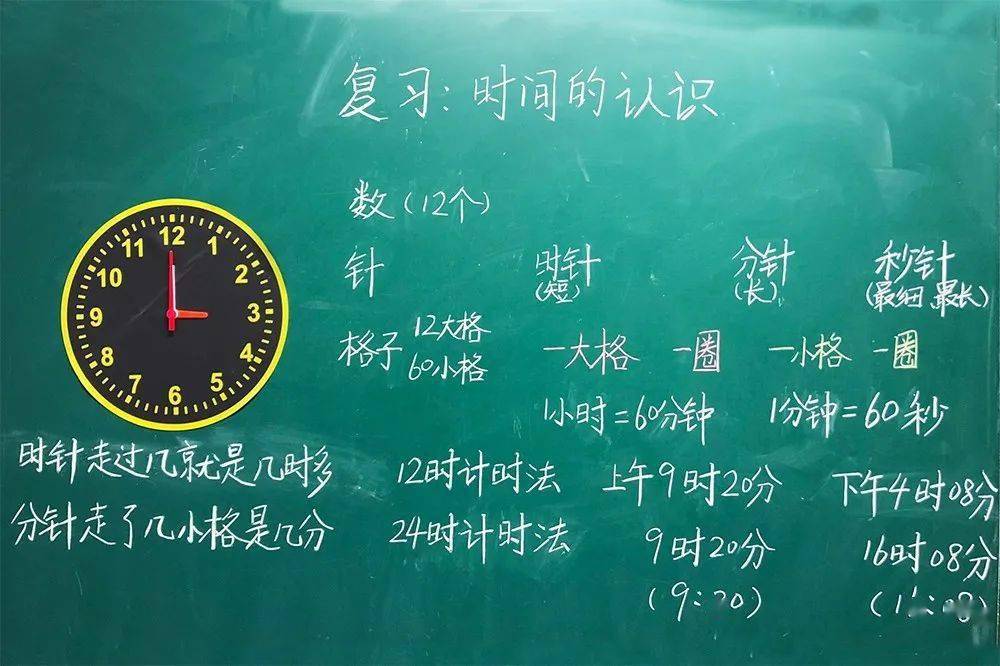 复习:时间的认识
数(12个)
针 时针 分针 秒针
(短) (长) (最细 最长)
格子 12大格 一大格 一圈 一小格 一圈
60小格
1小时=60分钟 1分钟=60秒
时针走过几就是几时多 12时计时法 上午9时20分 下午4时08分
分针走了几小格是几分 24时计时法 9时20分 16时08分
(9:20)
12
1
2
3
4
5
6
7
8
9
10
11